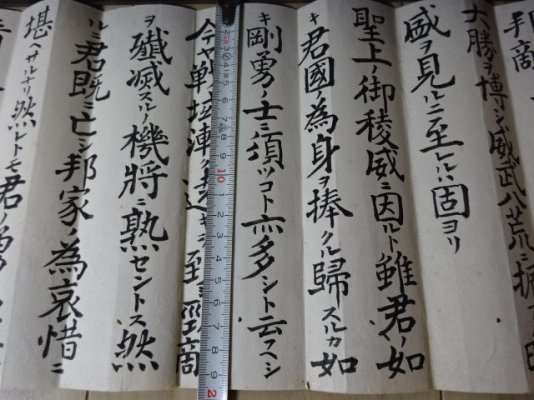 大勝ヲ博シ威武八荒ニ振
威ヲ見ルニ至レルハ固ヨリ
聖上ノ御稜威ニ因ルト雖君ノ如
キ君國ノ為身ヲ捧クル歸スルカ如
キ剛勇ノ士ニ須ツコト亦多シト云ヘシ
今ヤ戦域漸
ヲ殲滅スルノ機將ニ熟セントス然
ルニ君既ニ亡シ邦家ノ為哀惜ニ
堪ヘサルナリ然レトモ君ノ